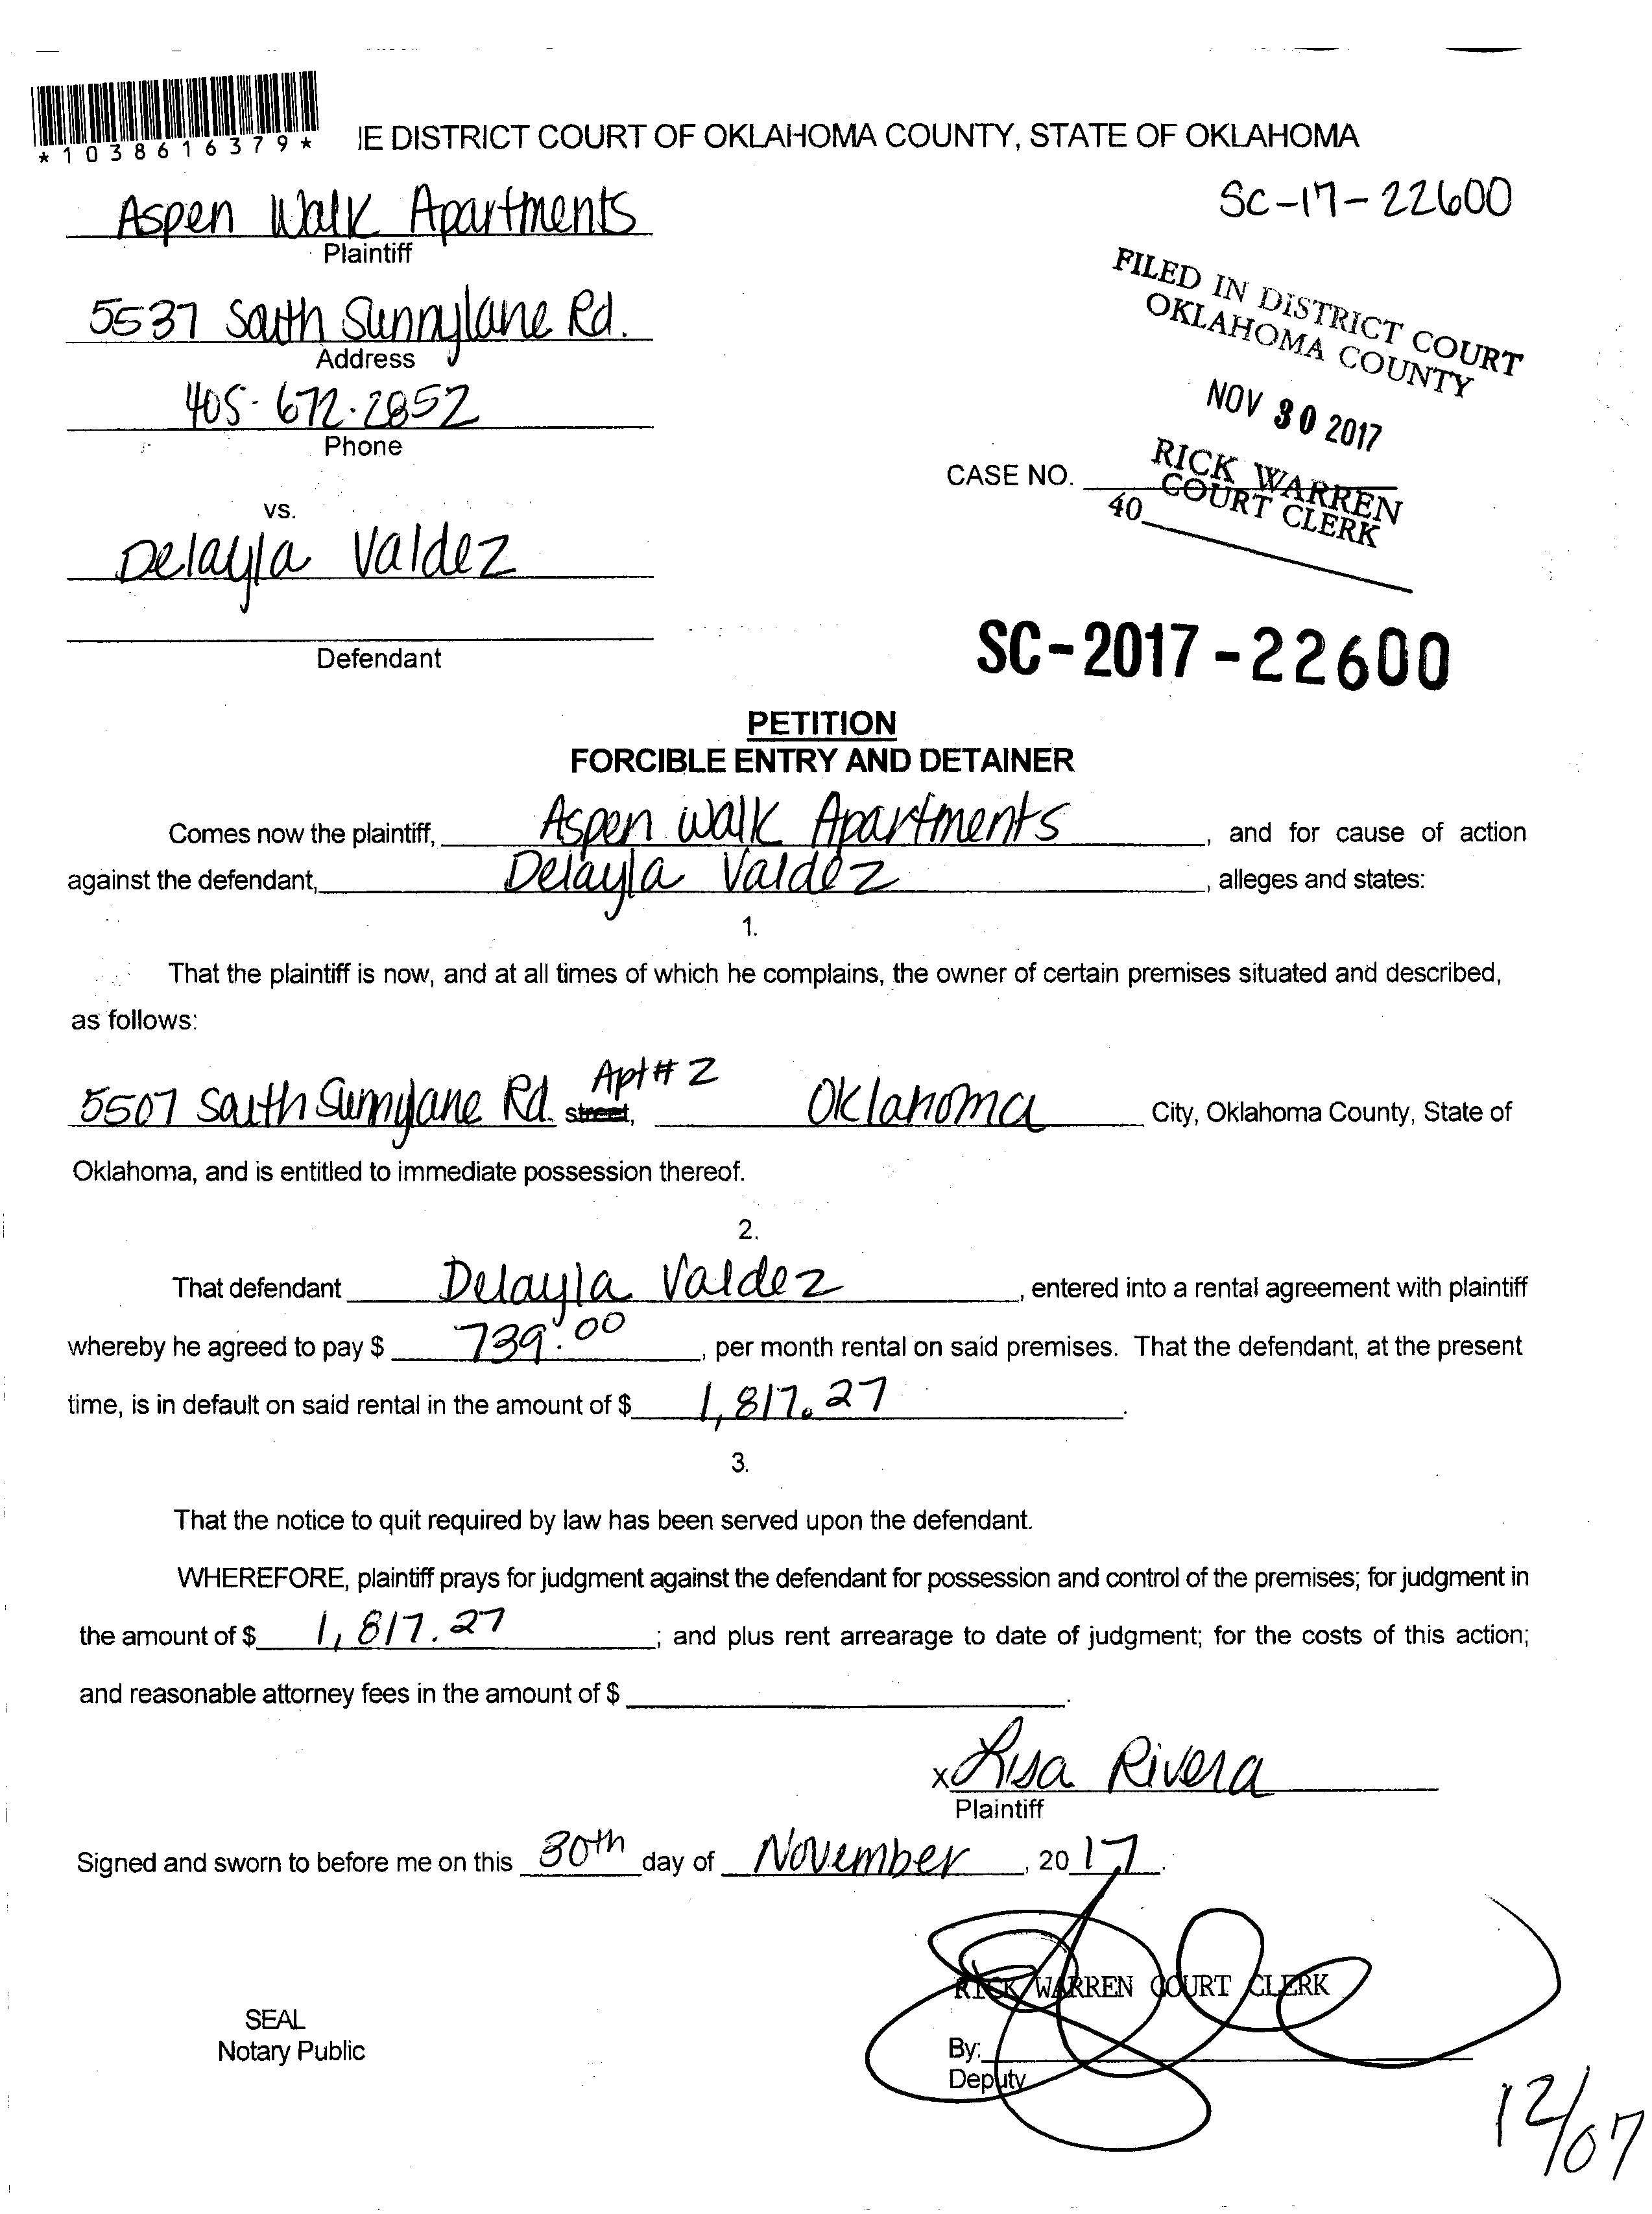 *1038616379*
IE DISTRICT COURT OF OKLAHOMA COUNTY, STATE OF OKLAHOMA
Aspen Walk Apartments
Plaintiff
SC-17-22600
5537 South Sunnylane Rd.
Address
405-672-2852
Phone
FILED IN DISTRICT COURT
OKLAHOMA COUNTY
NOV 30 2017
RICK WARREN
COURT CLERK
40
CASE NO.
vs.
Delayla Valdez
Defendant
SC-2017-22600
PETITION
FORCIBLE ENTRY AND DETAINER
Comes now the plaintiff, Aspen Walk Apartments, and for cause of action
against the defendant, Delayla Valdez, alleges and states:
1.
That the plaintiff is now, and at all times of which he complains, the owner of certain premises situated and described,
as follows:
5507 South Sunnylane Rd. street, Apt# 2 Oklahoma City, Oklahoma County, State of
Oklahoma, and is entitled to immediate possession thereof.
2.
That defendant Delayla Valdez, entered into a rental agreement with plaintiff
whereby he agreed to pay $ 739.00, per month rental on said premises. That the defendant, at the present
time, is in default on said rental in the amount of $ 1,817.27.
3.
That the notice to quit required by law has been served upon the defendant.
WHEREFORE, plaintiff prays for judgment against the defendant for possession and control of the premises; for judgment in
the amount of $ 1,817.27; and plus rent arrearage to date of judgment; for the costs of this action;
and reasonable attorney fees in the amount of $ .
x Lisa Rivera
Plaintiff
Signed and sworn to before me on this 30th day of November, 2017.
RICK WARREN COURT CLERK
SEAL
Notary Public
By:
Deputy
12/07